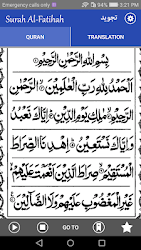 Emergency calls only 3:21 PM
Surah Al-Fatihah تجويد
QURAN TRANSLATION
بِسْمِ اللّٰهِ الرَّحْمٰنِ الرَّحِيْمِ
اَلْحَمْدُ لِلّٰهِ رَبِّ الْعٰلَمِيْنَ الرَّحْمٰنِ
الرَّحِيْمِ مٰلِكِ يَوْمِ الدِّيْنِ اِيَّاكَ نَعْبُدُ
وَاِيَّاكَ نَسْتَعِيْنُ اِهْدِنَا الصِّرَاطَ
الْمُسْتَقِيْمَ صِرَاطَ الَّذِيْنَ اَنْعَمْتَ عَلَيْهِمْ
غَيْرِ الْمَغْضُوْبِ عَلَيْهِمْ وَلَا الضَّآلِّيْنَ
GO TO